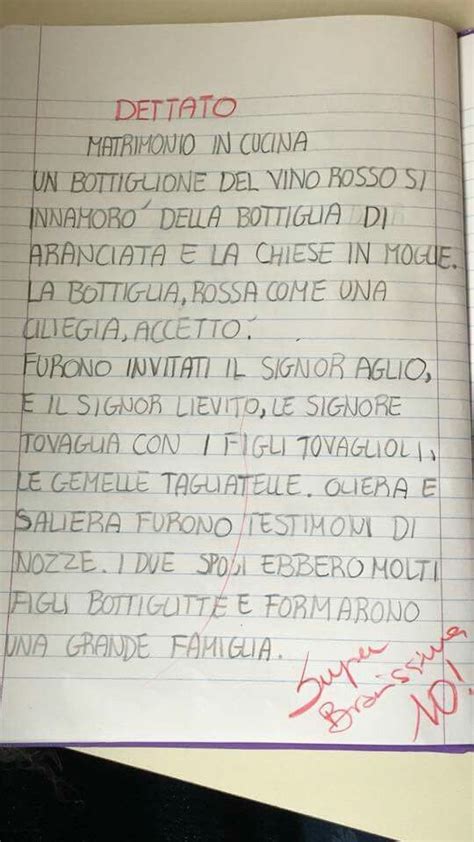 DETTATO
MATRIMONIO IN CUCINA
UN BOTTIGLIONE DEL VINO ROSSO SI
INNAMORÒ DELLA BOTTIGLIA DI
ARANCIATA E LA CHIESE IN MOGLIE.
LA BOTTIGLIA, ROSSA COME UNA
CILIEGIA, ACCETTÒ.
FURONO INVITATI IL SIGNOR AGLIO,
E IL SIGNOR LIEVITO, LE SIGNORE
TOVAGLIA CON I FIGLI TOVAGLIOLI,
LE GEMELLE TAGLIATELLE. OLIERA E
SALIERA FURONO TESTIMONI DI
NOZZE. I DUE SPOSI EBBERO MOLTI
FIGLI BOTTIGLITTE E FORMARONO
UNA GRANDE FAMIGLIA.
Super
Bravissima
10!